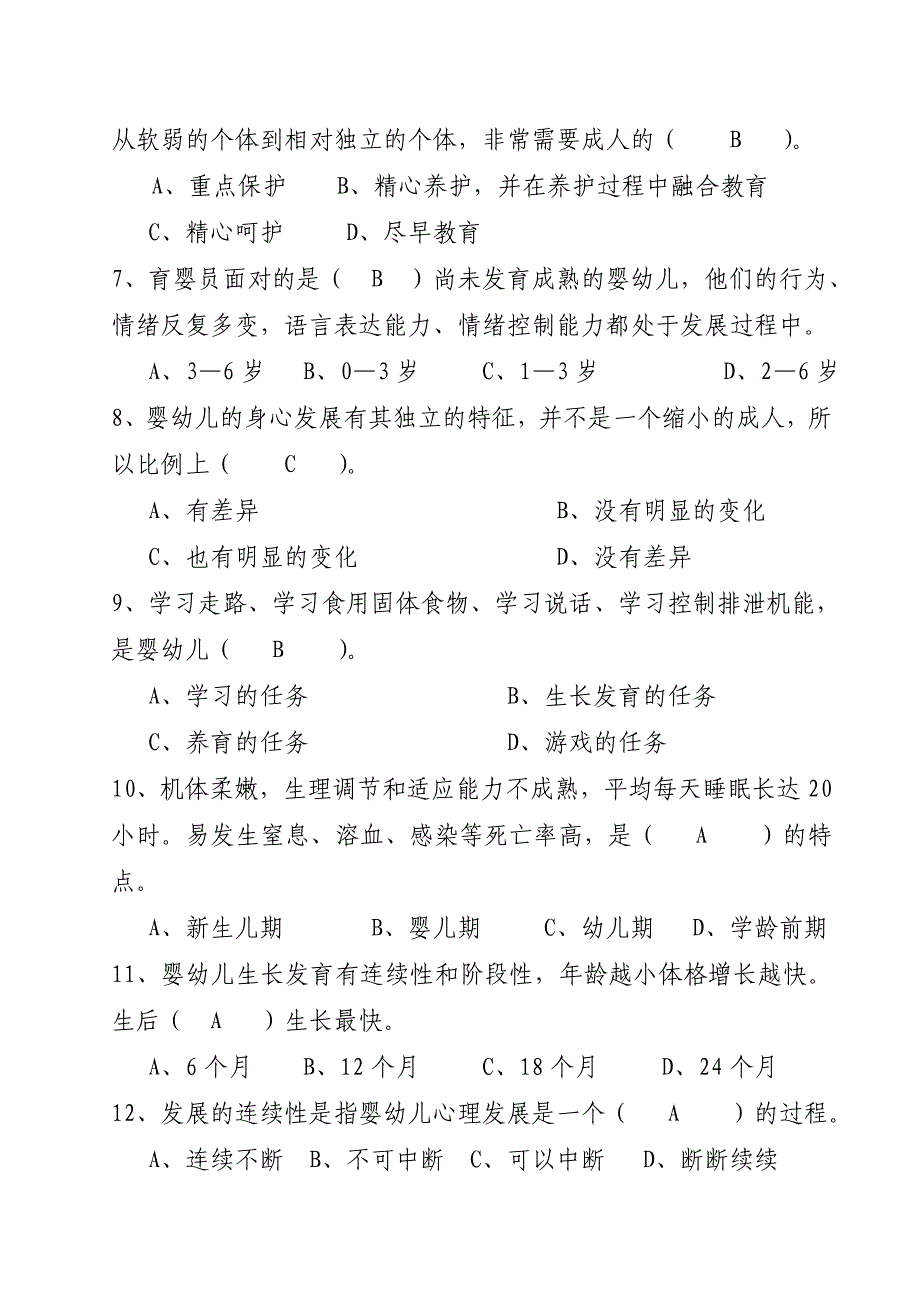 从软弱的个体到相对独立的个体，非常需要成人的（ B ）。
A、重点保护 B、精心养护，并在养护过程中融合教育
C、精心呵护 D、尽早教育
7、育婴员面对的是（ B ）尚未发育成熟的婴幼儿，他们的行为、
情绪反复多变，语言表达能力、情绪控制能力都处于发展过程中。
A、3—6 岁 B、0—3 岁 C、1—3 岁 D、2—6 岁
8、婴幼儿的身心发展有其独立的特征，并不是一个缩小的成人，所
以比例上（ C ）。
A、有差异 B、没有明显的变化
C、也有明显的变化 D、没有差异
9、学习走路、学习食用固体食物、学习说话、学习控制排泄机能，
是婴幼儿（ B ）。
A、学习的任务 B、生长发育的任务
C、养育的任务 D、游戏的任务
10、机体柔嫩，生理调节和适应能力不成熟，平均每天睡眠长达 20
小时。易发生窒息、溶血、感染等死亡率高，是（ A ）的特
点。
A、新生儿期 B、婴儿期 C、幼儿期 D、学龄前期
11、婴幼儿生长发育有连续性和阶段性，年龄越小体格增长越快。
生后（ A ）生长最快。
A、6 个月 B、12 个月 C、18 个月 D、24 个月
12、发展的连续性是指婴幼儿心理发展是一个（ A ）的过程。
A、连续不断 B、不可中断 C、可以中断 D、断断续续